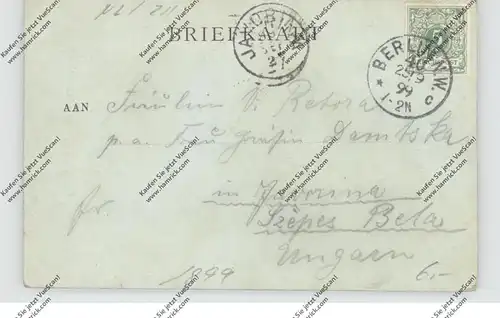 BRIEFKAART
JAVORINA
BERLIN N.W.
40
25/9
99
1-2N
* c
AAN Fräulein V. Retora
p. a. Frau Gräfin
in Javorina
Szepes Bela
Ungarn
fr.
1899
6.-
Kaufen Sie jetzt VueScan!
www.hamrick.com